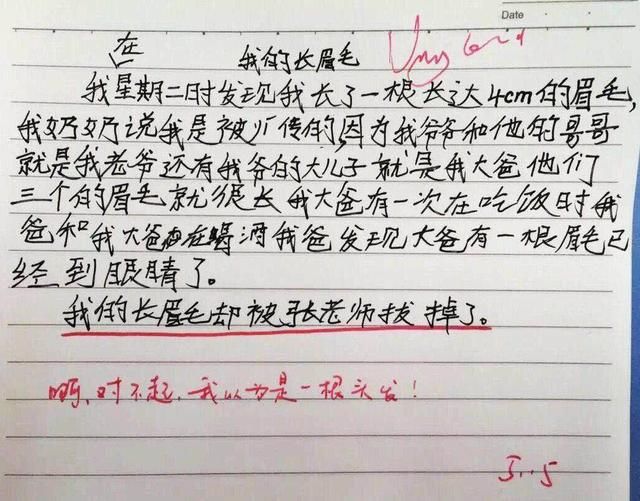 Date
我的长眉毛 Very Good
我在星期二时发现我长了一根长达4cm的眉毛,
我奶奶说我是被遗传的,因为我爷爷和他的哥哥
就是我老爷还有我爷的大儿子就是我大爸他们
三个的眉毛就很长我大爸有一次在吃饭时我
爸和我大爸在喝酒我爸发现大爸有一根眉毛已
经到眼睛了。
我的长眉毛却被张老师拔掉了。
啊,对不起,我以为是一根头发!
5..5